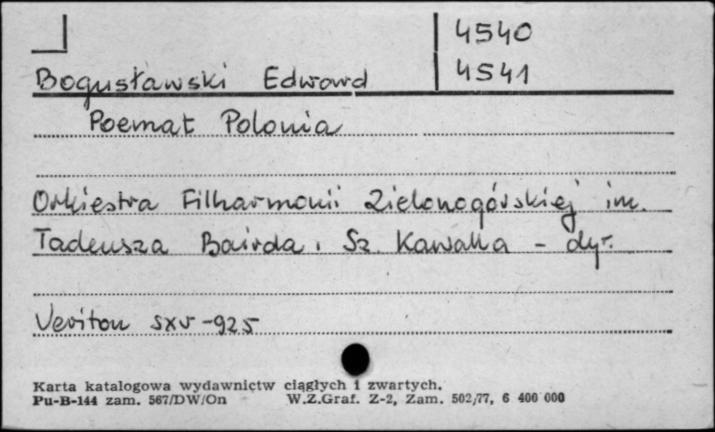 4540
4541
Bogusławski Edward
Poemat Polonia
Orkiestra Filharmonii Zielonogórskiej im.
Tadeusza Bairda. Sz. Kawalla - dyr.
Veriton sxv-925
Karta katalogowa wydawnictw ciągłych i zwartych.
Pu-B-144 zam. 567/DW/On W.Z.Graf. Z-2, Zam. 502/77, 6 400 000